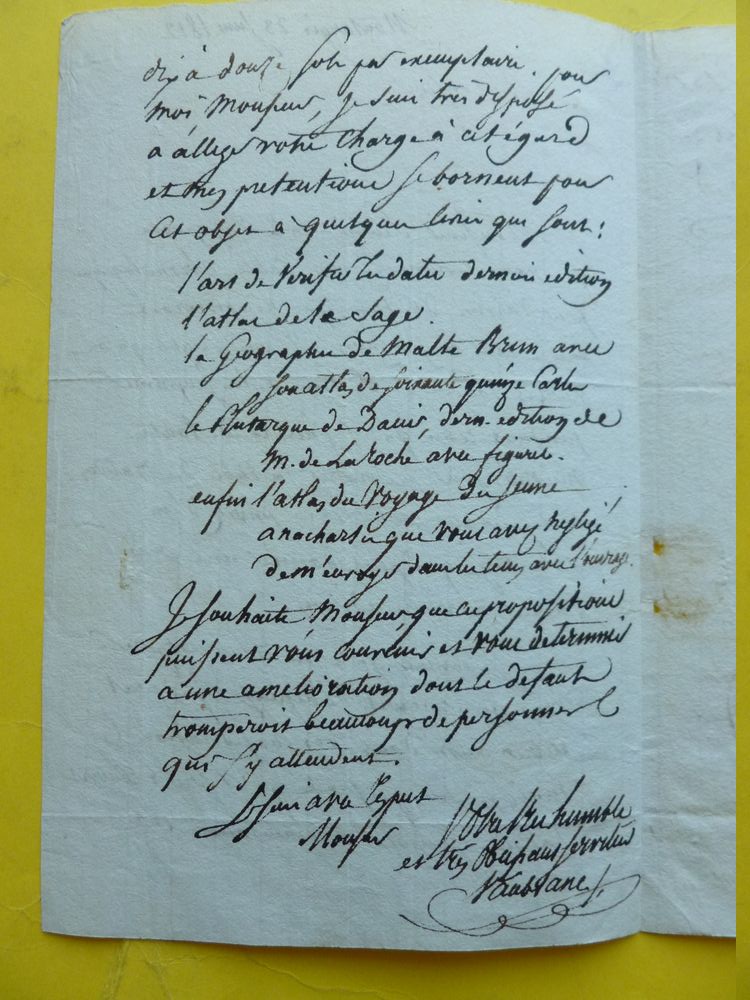 dix à douze sols par exemplaire. pour
moi Monsieur, je suis très disposé
a alleger votre charge à cet égard
et mes pretentions se bornent pour
cet objet à quelques livres qui sont :
l'art de vérifier les dates derniere edition
l'atlas de le Sage.
la Géographie de Malte Brun avec
son atlas de soixante quinze cartes
le Plutarque de Dacier, dern. edition de
M. de La roche avec figures.
enfin l'atlas du Voyage du jeune
anacharsis que vous avez négligé
de m'envoyer dans les tems avec l'ouvrage.
Je souhaite Monsieur, que ces propositions
puissent vous convenir et vous determiner
a une amelioration dont le defaut
tromperoit beaucoup de personnes
qui s'y attendent.
Je suis avec respect
Monsieur
Votre très humble
et très obéissant serviteur
Vaublanc